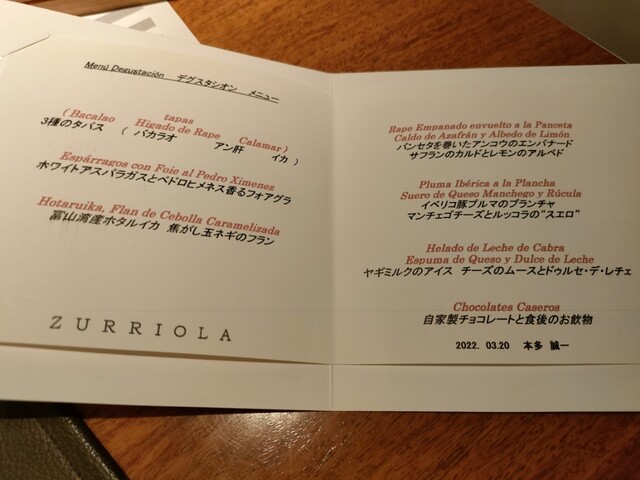 Menú Degustación デグスタシオン メニュー
tapas
(Bacalao Hígado de Rape Calamar)
3種のタパス ( バカラオ アン肝 イカ )
Espárragos con Foie al Pedro Ximenez
ホワイトアスパラガスとペドロヒメネス香るフォアグラ
Hotaruika, Flan de Cebolla Caramelizada
富山湾産ホタルイカ 焦がし玉ネギのフラン
ZURRIOLA
Rape Empanado envuelto a la Panceta
Caldo de Azafrán y Albedo de Limón
パンセタを巻いたアンコウのエンパナード
サフランのカルドとレモンのアルベド
Pluma Ibérica a la Plancha
Suero de Queso Manchego y Rúcula
イベリコ豚プルマのプランチャ
マンチェゴチーズとルッコラの"スエロ"
Helado de Leche de Cabra
Espuma de Queso y Dulce de Leche
ヤギミルクのアイス チーズのムースとドゥルセ・デ・レチェ
Chocolates Caseros
自家製チョコレートと食後のお飲物
2022. 03.20 本多 誠一